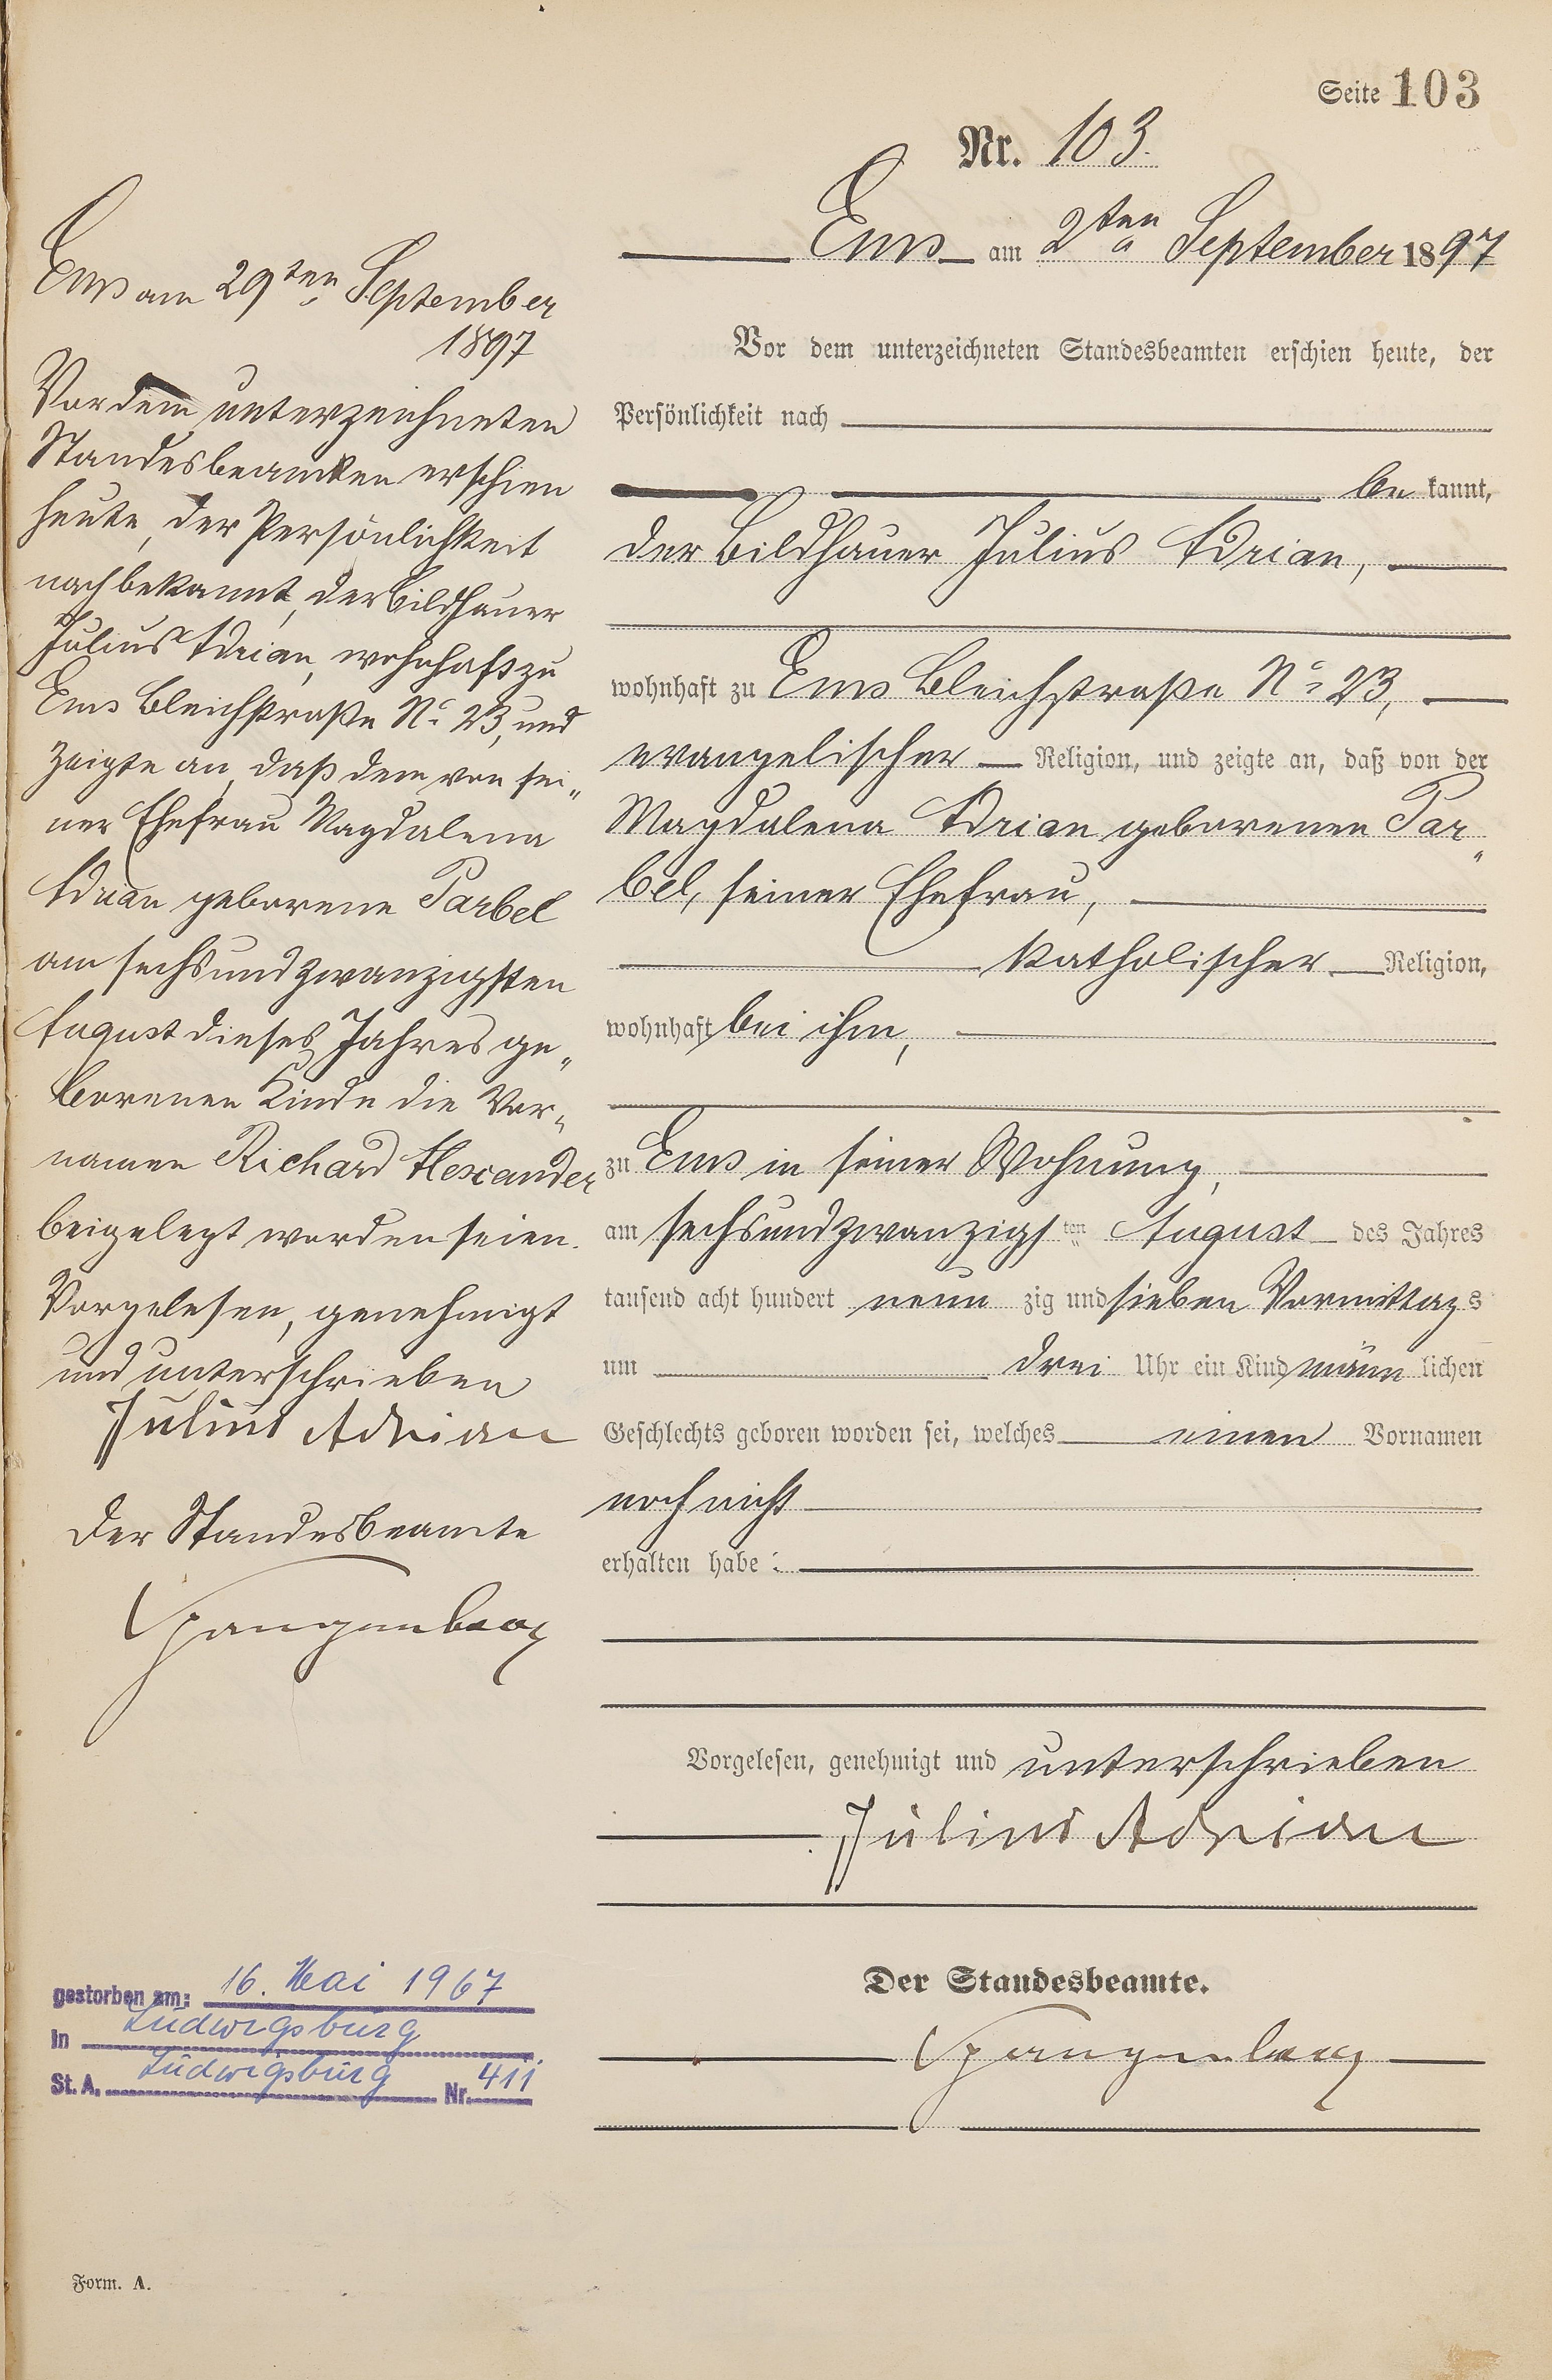 Seite 103
Nr. 103.
Ems am 2ten September 1897
Vor dem unterzeichneten Standesbeamten erschien heute, der
Persönlichkeit nach
be kannt,
der Bildhauer Julius Adrian,
wohnhaft zu Ems Bleichstraße No 23,
evangelischer Religion, und zeigte an, daß von der
Magdalena Adrian geborenen Par„
bel, seiner Ehefrau,
katholischer Religion,
wohnhaft bei ihm,
zu Ems in seiner Wohnung,
am sechsundzwanzigs ten August des Jahres
tausend acht hundert neun zig und sieben Vormittags
um drei Uhr ein Kind männ lichen
Geschlechts geboren worden sei, welches einen Vornamen
noch nicht
erhalten habe:
Vorgelesen, genehmigt und unterschrieben
Julius Adrian
Der Standesbeamte.
Spangenberg
Ems am 29ten September
1897
Vor dem unterzeichneten
Standesbeamten erschien
heute, der Persönlichkeit
nach bekannt, der Bildhauer
Julius Adrian, wohnhaft zu
Ems Bleichstraße No 23, und
zeigte an, daß dem von sei„
ner Ehefrau Magdalena
Adrian geborene Parbel
am sechsundzwanzigsten
August dieses Jahres ge„
borenen Kinde die Vor„
namen Richard Alexander
beigelegt worden seien.
Vorgelesen, genehmigt
und unterschrieben
Julius Adrian
Der Standesbeamte
Spangenberg
gestorben am: 16. Mai 1967
in Ludwigsburg
St. A. Ludwigsburg Nr. 411
Form. A.